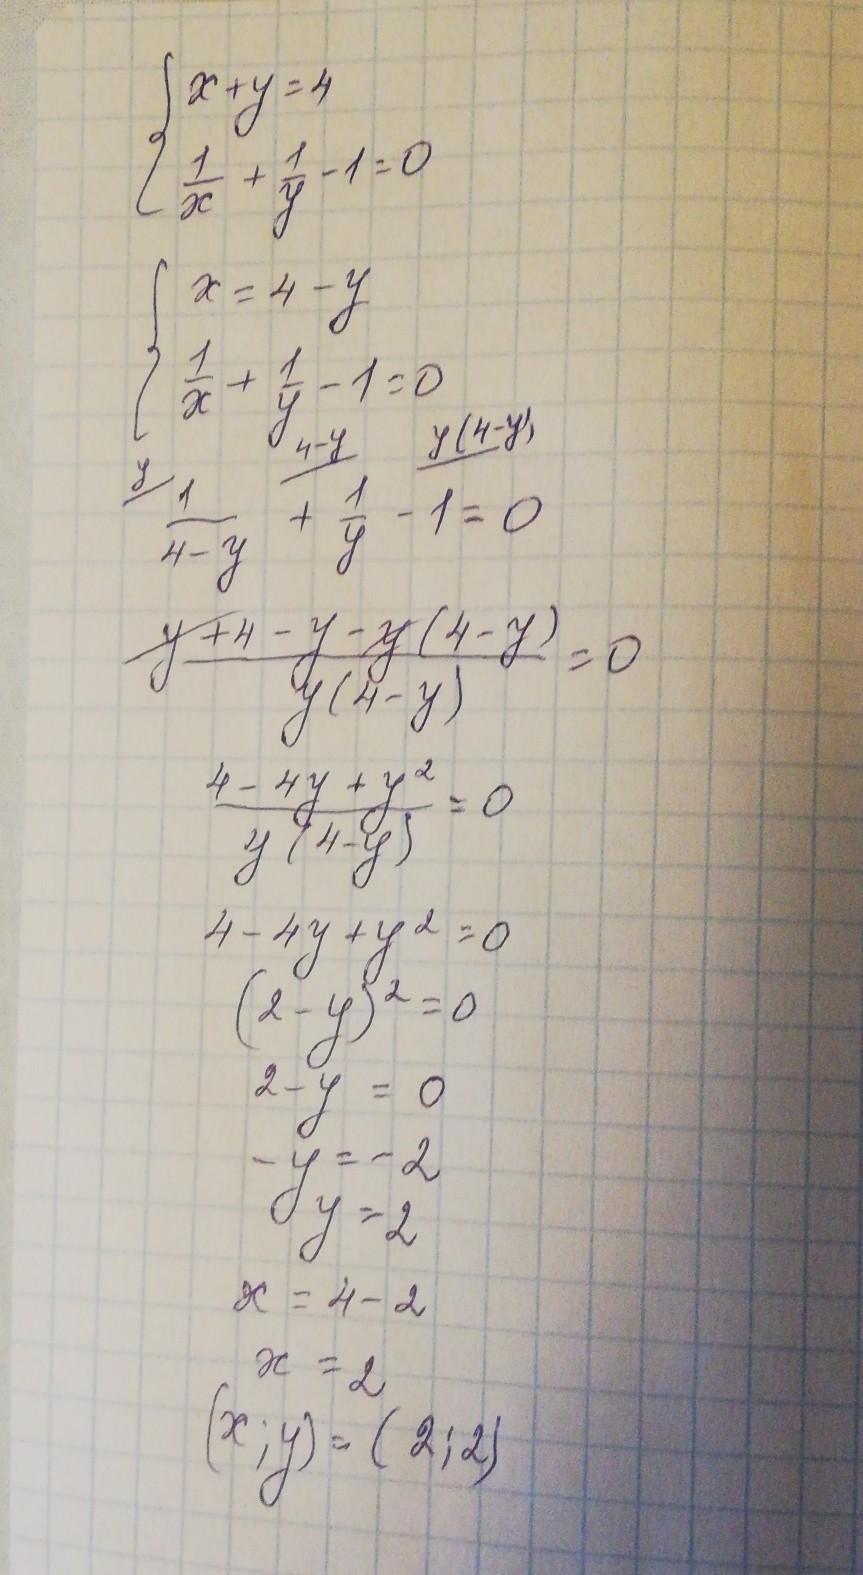 x+y=4
1/x + 1/y - 1=0
x = 4 - y
1/x + 1/y - 1=0
y 4-y y(4-y)
1/(4-y) + 1/y - 1 = 0
(y+4-y-y(4-y))/(y(4-y)) = 0
(4-4y+y²)/(y(4-y)) = 0
4-4y+y²=0
(2-y)²=0
2-y = 0
-y=-2
y=2
x = 4-2
x = 2
(x;y)=(2;2)